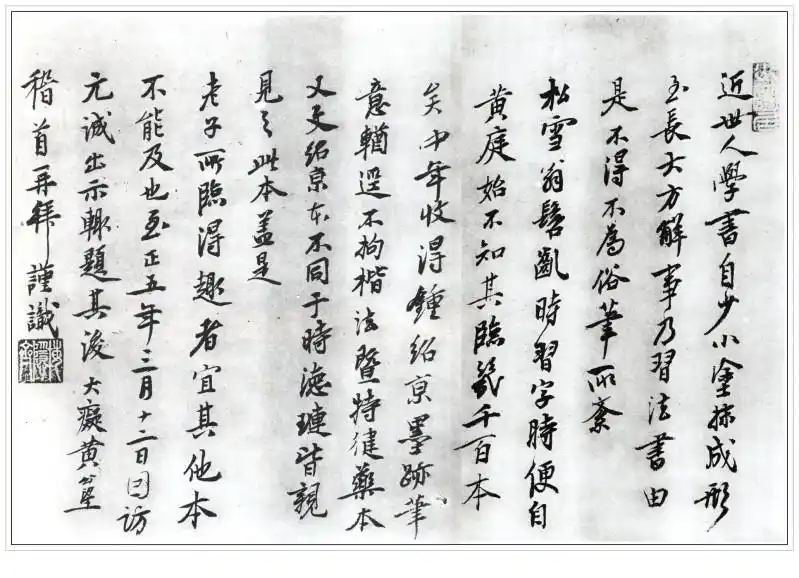 近世人學書自少小塗抹成形
至長大方解事乃習法書由
是不得不為俗筆所紊
松雪翁髫齔時習字時便自
黃庭始不知其臨幾千百本
矣中年收得鍾紹京墨跡筆
意輶逕不拘楷法暨特健藥本
又更紹京本不同于時德璉皆親
見之此本蓋是
老子所臨得趣者宜其他本
不能及也至正五年三月十二日因訪
元誠出示輙題其後大癡黃公望
稽首再拜謹識